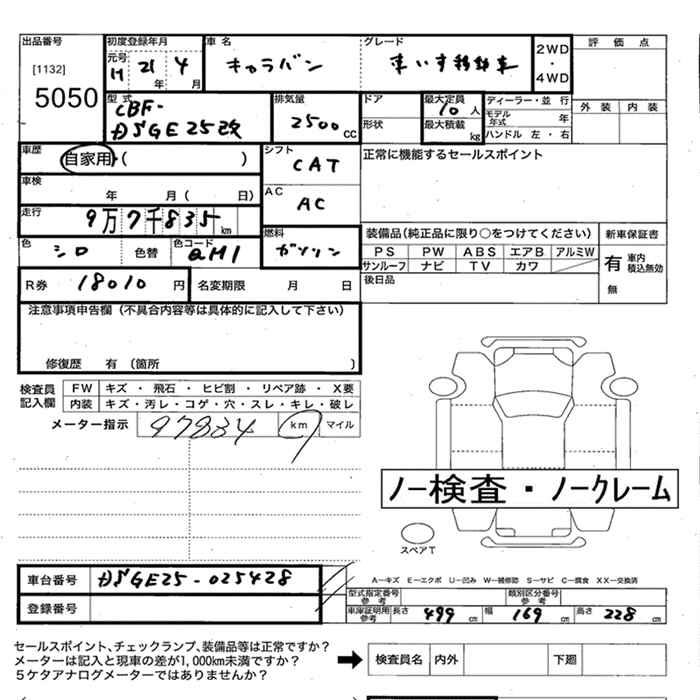 出品番号 初度登録年月 車名 グレード 2WD・4WD 評価点
[1132] 5050
元号 H 21年 4月 キャラバン 車いす移動車
外装 内装
型式 CBF- DSGE25改 排気量 2500cc
ドア 形状 最大定員 10人 最大積載 kg
ディーラー・並行
モデル年式 年
ハンドル 左・右
車歴 自家用 ( )
シフト CAT
正常に機能するセールスポイント
車検 年 月 ( 日)
AC AC
走行 9万7千835km
色 シロ 色替 色コード QM1
燃料 ガソリン
装備品(純正品に限り○をつけてください) 新車保証書
PS PW ABS エアB アルミW
サンルーフ ナビ TV カワ
有 車内積込無効
無
後日品
R券 18010円 名変期限 月 日
注意事項申告欄(不具合内容等は具体的に記入して下さい)
修復歴 有 (箇所 )
検査員記入欄
FW キズ・飛石・ヒビ割・リペア跡・X要
内装 キズ・汚レ・コゲ・穴・スレ・キレ・破レ
メーター指示 97834 km マイル
ノー検査・ノークレーム
スペアT
車台番号 DSGE25-025428
登録番号
A-キズ E-エクボ U-凹み W-補修跡 S-サビ C-腐食 XX-交換済
型式指定番号 参考 類別区分番号 参考
車庫証明用 参考 長さ 499cm 幅 169cm 高さ 228cm
セールスポイント、チェックランプ、装備品等は正常ですか?
メーターは記入と現車の差が1,000km未満ですか?
5ケタアナログメーターではありませんか?
検査員名 内外 下廻